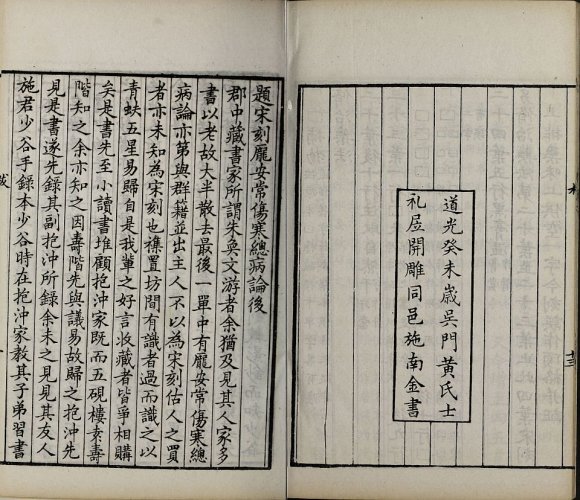 道光癸未歲吳門黃氏士
礼居開雕同邑施南金書
題宋刻龐安常傷寒總病論後
郡中藏書家所謂朱奐文游者余猶及見其人家多
書以老故大半散去最後一單中有龐安常傷寒總
病論亦第與群籍並出主人不以為宋刻估人之買
者亦未知為宋刻也襍置坊間有識者過而識之以
青蚨五星易歸自是我輩之好言收藏者皆爭相購
矣是書先至小讀書堆顧抱沖家既而五硯樓袁壽
階知之余亦知之因壽階先與議易故歸之抱沖先
見是書遂先錄其副抱沖所錄余未之見見其友人
施君少谷手錄本少谷時在抱沖家教其子弟習書